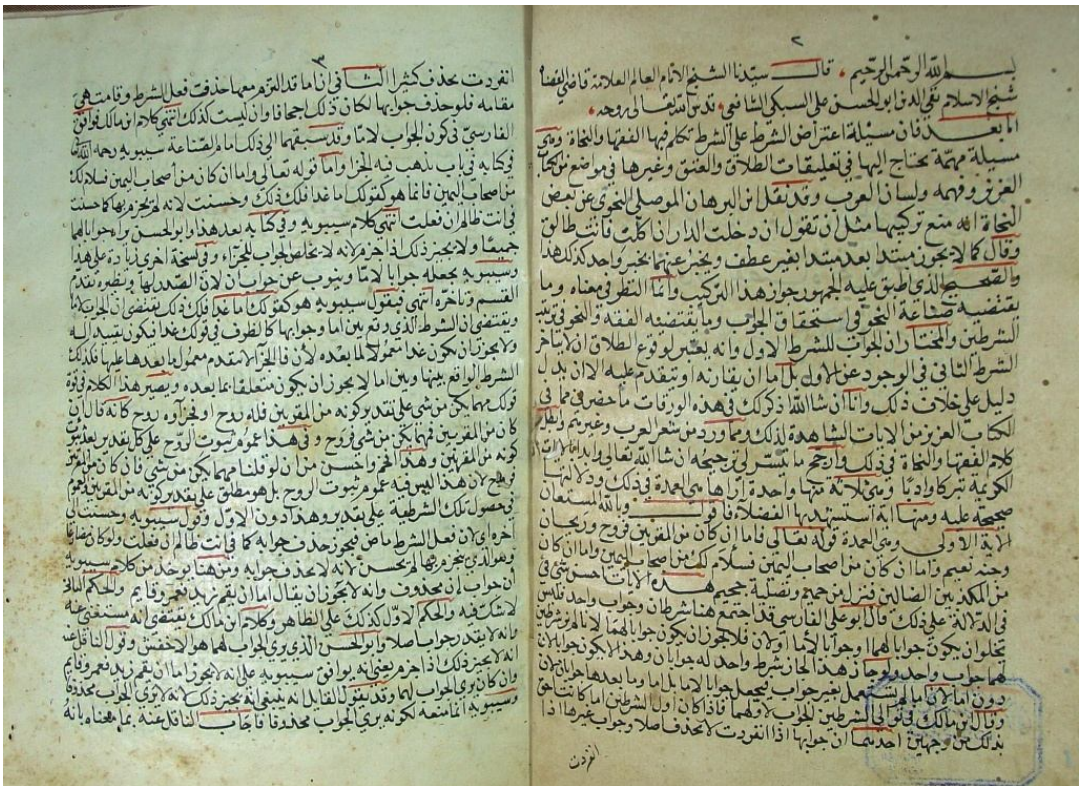 ٢
بسم الله الرحمن الرحيم قال سيدنا الشيخ الامام العالم العلامة قاضي القضاة
شيخ الاسلام تقي الدين ابو الحسن علي السبكي الشافعي قدس الله تعالى روحه
اما بعد فان مسئلة اعتراض الشرط على الشرط تكلم فيها الفقهاء والنحاة وهي
مسيلة مهمة يحتاج اليها في تعليقات الطلاق والعتق وغيرها في مواضع من الكتاب
العزيز وفهمه ولسان العرب وقد نقل ابن البرهان الموصلي النحوي عن بعض
النحاة انه منع تركيبها مثل ان تقول ان دخلت الدار ان كلمت فانت طالق
وقال كما لا يجوز مبتدا بعد مبتدا بغير عطف ويخبر عنهما بخبر واحد كذلك هذا
والصحيح الذي اطبق عليه الجمهور جواز هذا التركيب وانما النظر في معناه وما
يقتضيه صناعة النحو في استحقاق الجواب وما يقتضيه الفقه والنحو في ترتيب
الشرطين والمختار ان الجواب للشرط الاول وانه يعتبر لوقوع الطلاق ان لا يتاخر
الشرط الثاني في الوجود عن الاول بل اما ان يقارنه او يتقدم عليه الا ان يدل
دليل على خلاف ذلك وانا ان شا الله اذكر لك في هذه الورقات ما حضر في مما في
الكتاب العزيز من الايات الشاهدة لذلك ومما ورد من شعر العرب وغيرهم
كلام الفقها والنحاة في ذلك وارجح ما يتيسر لي ترجيحه ان شا الله تعالى وابدا
الكريمة تبركا وادبا وهي ثلاثة منها واحدة اراها هي العمدة في ذلك ودلالتها
صحيحة عليه ومنها اية استشهد بها الفضلا فاقول وبالله المستعان
الاية الاولى وهي العمدة قوله تعالى فاما ان كان من المقربين فروح وريحان
وجنة نعيم واما ان كان من اصحاب اليمين فسلام لك من اصحاب اليمين واما ان كان
من المكذبين الضالين فنزل من حميم وتصلية جحيم هذه الايات احسن شي في
في الدلالة على ذلك قال ابو علي الفارسي قد اجتمع هنا شرطان وجواب واحد فليس
يخلو ان يكون جوابا لهما او جوابا لاما او لان فلا يجوز ان يكون جوابا لهما لانا لم نر شرطين
لهما جواب واحد ولو جاز هذا لجاز شرط واحد له جوابان وهذا لا يكون جوابا لان
دون اما لان اما لم تستعمل بغير جواب فيجعل جوابا لاما
وقال ابن مالك في توالي الشرطين الجواب لاولهما فاذا كان اول الشرطين اما كانت احق
بذلك من وجهين احدهما ان جوابها اذا انفردت لا يحذف اصلا وجواب غيرها اذا
انفردت
٣
انفردت يحذف كثيرا الثاني ان اما قد التزم معها حذف فعل الشرط وقامت هي
مقامه فلو حذف جوابها لكان ذلك اجحافا وان ليست كذلك انتهى كلام ابن مالك فوافق
الفارسي في كون الجواب لاما وقد سبقهما الى ذلك امام الصناعة سيبويه رحمه الله
في كتابه في باب يذهب فيه الجزا واما قوله تعالى واما ان كان من اصحاب اليمين فسلام لك
من اصحاب اليمين فانما هو كقولك اما غدا فلك ذلك وحسنت لانه لم يجزم بها كما حسنت
في انت ظالم ان فعلت انتهى كلام سيبويه وفي كتابه بعد هذا وابو الحسن يراه جوابا لهما
جميعا ولا يجيز ذلك اذا جزم لانه لا يخلص الجواب للجزاء وفي نسخة اخرى زيادة على هذا
وسيبويه يجعله جوابا لاما وينوب عن جواب ان لان الصدر لها ونظيره تقدم
القسم وتاخره انتهى فيقول سيبويه هو كقولك اما غدا فلك ذلك يقتضي ان الجواب لاما
ويقتضي ان الشرط الذي وقع بين اما وجوابها كالظرف في قولك غدا
ولا يجوز ان يكون غدا معمولا لما بعده لان فا الجزا لا يتقدم معمول ما بعدها عليها فكذلك
الشرط الواقع بينها وبين اما لا يجوز ان يكون متعلقا بما بعده ويصير هذا الكلام في قوة
قولك مهما يكن من شي على تقدير كونه من المقربين فله روح او فجزاوه روح كانه قال ان
كان من المقربين فمهما يكن من شي فروح وفي هذا عموم ثبوت الروح على كل تقدير بعد ثبوت
كونه من المقربين وهذا افخم واحسن من ان لو قلنا مهما يكن من شي فان كان من المقربين
لان هذا ليس فيه عموم ثبوت الروح بل هو مطلق على تقدير كونه من المقربين
في حصول تلك الشرطية على تقدير وهذا دون الاول وقول سيبويه وحسنت الى
اخره اي لان فعل الشرط ماض فيجوز حذف جوابه كما في انت ظالم ان فعلت ولو كان مضارعا
وهو الذي ينجزم بها لم يحسن لانه لا يحذف جوابه ومن هنا يوخذ من كلام سيبويه
ان جواب ان محذوف وانه لا يجوز ان يقال اما ان يقم زيد فعمرو قايم والحكم الثاني
لا شك فيه والحكم الاول كذلك على الظاهر وكلام ابن مالك يقتضي انه مستغنى عنه
وانه لا يقدر جواب اصلا وابو الحسن الذي يرى الجواب لهما هو الاخفش وقول الناقل عنه
انه لا يجيز ذلك اذا جزم يعني انه يوافق سيبويه على انه لا يجوز اما ان يقم زيد فعمرو قايم
وان كان يرى الجواب لهما وقد يقول القايل انه ينبغي انه يجيز ذلك لانه لا يرى الجواب محذوفا
وسيبويه انما منعه لكونه يرى الجواب محذوفا فاجاب الناقل عنه بما معناه بانه